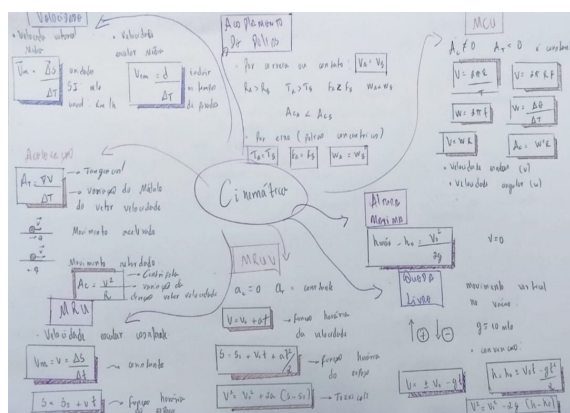 Velocidade
• Velocidade vetorial
Média
• Velocidade
escalar Média
Vm = ΔS
ΔT
unidade
SI m/s
Vem = d
ΔT
incluir
o tempo
de paradas
Aceleração
AT = ΔV
ΔT
→ Tangencial
→ variação do Módulo
do vetor velocidade
Movimento acelerado
Movimento retardado
Ac = V²
R
→ Centrípeta
→ variação da
direção vetor velocidade
MRU
• Velocidade escalar constante
Vm = V = ΔS
Δt
→ constante
S = S0 + vt → função horária
Acoplamento
De Polias
• Por correia ou contato: VA = VB
RA > RB TA > TB FA < FB WA < WB
ACA < ACB
• Por eixo (polias concêntricas)
TA = TB FA = FB WA = WB
Cinemática
MRUV
ac = 0 aT = constante
V = V0 + at → função horária
da velocidade
S = S0 + V0t + at²
2
→ função horária
do espaço
V² = V0² + 2a (S - S0) → Torricelli
MCU
Ac ≠ 0 AT = 0 é constante
V = 2πR
T
V = 2πRF
W = 2πF
W = Δθ
ΔT
V = WR
Ac = W²R
• Velocidade escalar (v)
• Velocidade angular (w)
Altura
Máxima
hmáx - h0 = V0²
2g
V = 0
Queda
Livre
movimento vertical
no vácuo
g = 10 m/s
• convenção:
V = ± V0 - gt
h = h0 ± V0t - gt²
2
V² = V0² - 2g (h - h0)